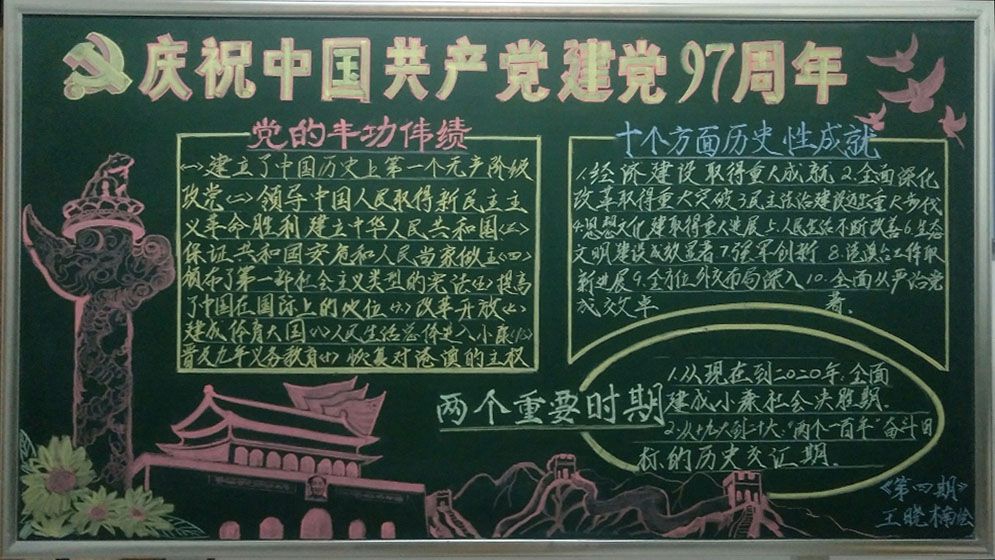 庆祝中国共产党建党97周年
党的丰功伟绩
㈠建立了中国历史上第一个无产阶级
政党㈡领导中国人民取得新民主主
义革命胜利建立中华人民共和国㈢
保证共和国安危和人民当家做主㈣
颁布了第一部社会主义类型的宪法㈤提高
了中国在国际上的地位㈥改革开放㈦
建成体育大国㈧人民生活总体进入小康㈨
普及九年义务教育㈩恢复对港澳的主权
十个方面历史性成就
1.经济建设取得重大成就2.全面深化
改革取得重大突破3民主法治建设迈出重大步伐
4.思想文化建设取得重大进展5人民生活不断改善6.生态
文明建设成效显著7强军创新8港澳台工作取
新进展9.全方位外交布局深入10.全面从严治党
成效卓著.
两个重要时期
1.从现在到2020年,全面
建成小康社会决胜期.
2.从十九大到二十大,"两个一百年"奋斗目
标的历史交汇期.
《第四期》
王晓楠绘